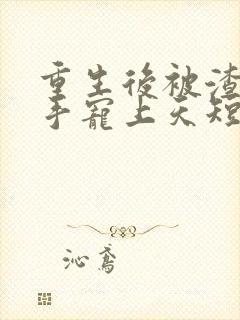 重生後被渣
手寵上天短
沁鳶